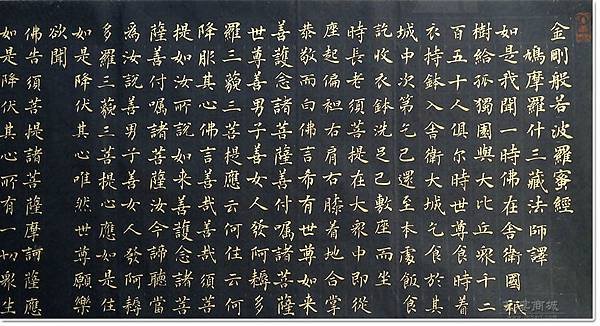 金剛般若波羅蜜經
鳩摩羅什三藏法師譯
如是我聞一時佛在舍衛國祇
樹給孤獨園與大比丘衆千二
百五十人俱尔時世尊食時着
衣持鉢入舍衛大城乞食於其
城中次第乞已還至本處飯食
訖收衣鉢洗足已敷座而坐
時長老須菩提在大衆中即從
座起偏袒右肩右膝着地合掌
恭敬而白佛言希有世尊如来
善護念諸菩薩善付嘱諸菩薩
世尊善男子善女人發阿耨多
羅三藐三菩提應云何住云何
降伏其心佛言善哉善哉須菩
提如汝所説如来善護念諸菩
薩善付嘱諸菩薩汝今諦聽當
為汝説善男子善女人發阿耨
多羅三藐三菩提心應如是住
如是降伏其心唯然世尊願樂
欲聞
佛告須菩提諸菩薩摩訶薩應
如是降伏其心所有一切衆生
商城